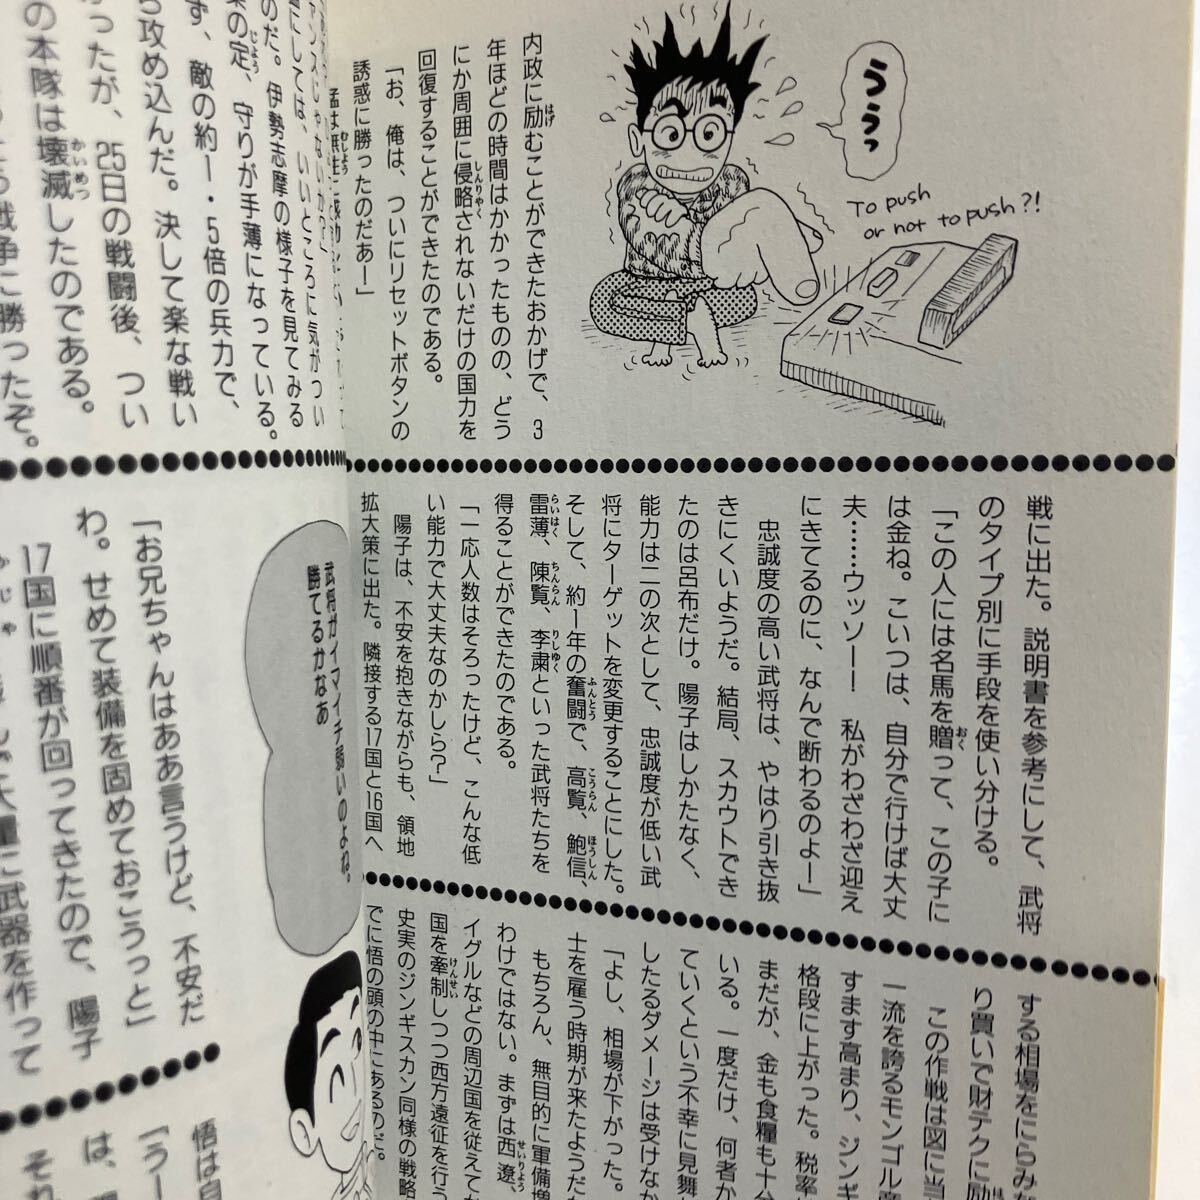 ううっ
To push
or not to push?!
内政に励むことができたおかげで、3
年ほどの時間はかかったものの、どう
にか周囲に侵略されないだけの国力を
回復することができたのである。
「お、俺は、ついにリセットボタンの
誘惑に勝ったのだあー」
戦に出た。説明書を参考にして、武将
のタイプ別に手段を使い分ける。
「この人には名馬を贈って、この子に
は金ね。こいつは、自分で行けば大丈
夫……ウッソー！　私がわざわざ迎え
にきてるのに、なんで断わるのよー」
忠誠度の高い武将は、やはり引き抜
きにくいようだ。結局、スカウトでき
たのは呂布だけ。陽子はしかたなく、
能力は二の次として、忠誠度が低い武
将にターゲットを変更することにした。
そして、約1年の奮闘で、高覧、鮑信、
雷薄、陳覧、李粛といった武将たちを
得ることができたのである。
「一応人数はそろったけど、こんな低
い能力で大丈夫なのかしら？」
陽子は、不安を抱きながらも、領地
拡大策に出た。隣接する17国と16国へ
する相場をにらみ
り買いで財テクに励
この作戦は図に当
一流を誇るモンゴル
すます高まり、ジンギ
格段に上がった。税率
まだが、金も食糧も十分
いる。一度だけ、何者か
ていくという不幸に見舞
したるダメージは受けなか
「よし、相場が下がった。
士を雇う時期が来たようだ
もちろん、無目的に軍備増
わけではない。まずは西遼、
イグルなどの周辺国を従えて
国を牽制しつつ西方遠征を行う
史実のジンギスカン同様の戦略
でに悟の頭の中にあるのだ。
ャンスじゃないか？」
にしては、いいところに気がつい
のだ。伊勢志摩の様子を見てみる
の定、守りが手薄になっている。
ず、敵の約1・5倍の兵力で、
ら攻め込んだ。決して楽な戦い
ったが、25日の戦闘後、つい
の本隊は壊滅したのである。
戦争に勝ったぞ。
武将がイマイチ弱いのよね。
勝てるかなぁ
「お兄ちゃんはああ言うけど、不安だ
わ。せめて装備を固めておこうっと」
17国に順番が回ってきたので、陽子
に武器を作って
悟は自
「うー
は、
それ